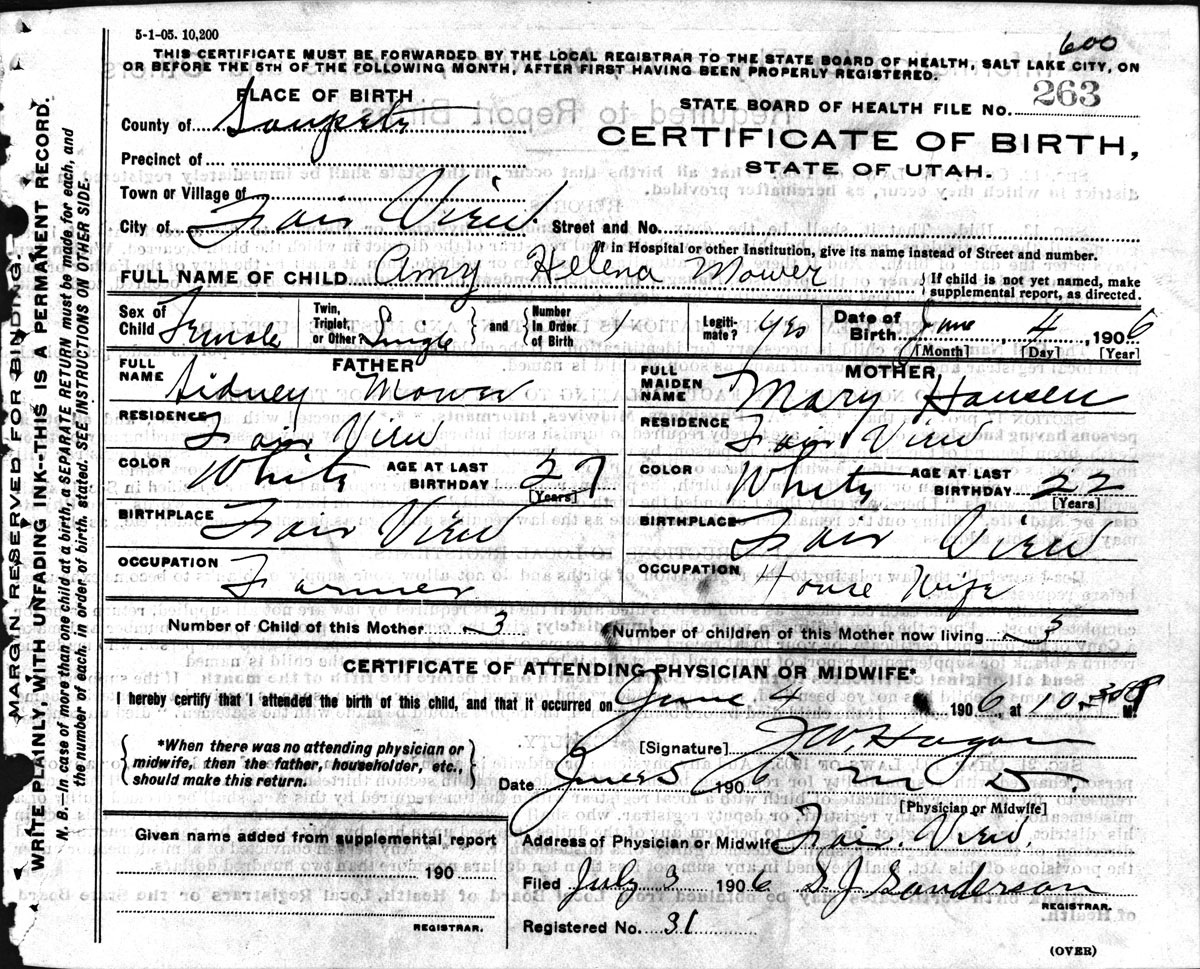 5-1-05. 10,200
600
THIS CERTIFICATE MUST BE FORWARDED BY THE LOCAL REGISTRAR TO THE STATE BOARD OF HEALTH, SALT LAKE CITY, ON
OR BEFORE THE 5TH OF THE FOLLOWING MONTH, AFTER FIRST HAVING BEEN PROPERLY REGISTERED.
PLACE OF BIRTH
STATE BOARD OF HEALTH FILE No. 263
County of Sanpete
CERTIFICATE OF BIRTH,
STATE OF UTAH.
Precinct of
Town or Village of
City of Fair View. Street and No.
If in Hospital or other Institution, give its name instead of Street and number.
FULL NAME OF CHILD Amy Helena Mower { If child is not yet named, make supplemental report, as directed.
Sex of Child Female Twin, Triplet, or Other? Single } and { Number In Order of Birth 1 Legiti-mate? Yes Date of Birth June 4 1906
[Month] [Day] [Year]
FATHER
FULL NAME Sidney Mower
RESIDENCE Fair View
COLOR White AGE AT LAST BIRTHDAY 27
[Years]
BIRTHPLACE Fair View
OCCUPATION Farmer
MOTHER
FULL MAIDEN NAME Mary Hansen
RESIDENCE Fair View
COLOR White AGE AT LAST BIRTHDAY 22
[Years]
BIRTHPLACE Fair View
OCCUPATION House Wife
Number of Child of this Mother 3 Number of children of this Mother now living 3
CERTIFICATE OF ATTENDING PHYSICIAN OR MIDWIFE*
I hereby certify that I attended the birth of this child, and that it occurred on June 4 1906, at 10 M.
{ *When there was no attending physician or midwife, then the father, householder, etc., should make this return. }
[Signature]
Date June 5 1906 M D.
[Physician or Midwife]
Given name added from supplemental report
190
REGISTRAR.
Address of Physician or Midwife Fair View.
Filed July 3 1906 S J Sanderson
REGISTRAR.
Registered No. 31
(OVER)
MARGIN RESERVED FOR BINDING.
WRITE PLAINLY, WITH UNFADING INK--THIS IS A PERMANENT RECORD.
N. B.--In case of more than one child at a birth, a SEPARATE RETURN must be made for each, and
the number of each, in order of birth, stated. SEE INSTRUCTIONS ON OTHER SIDE.